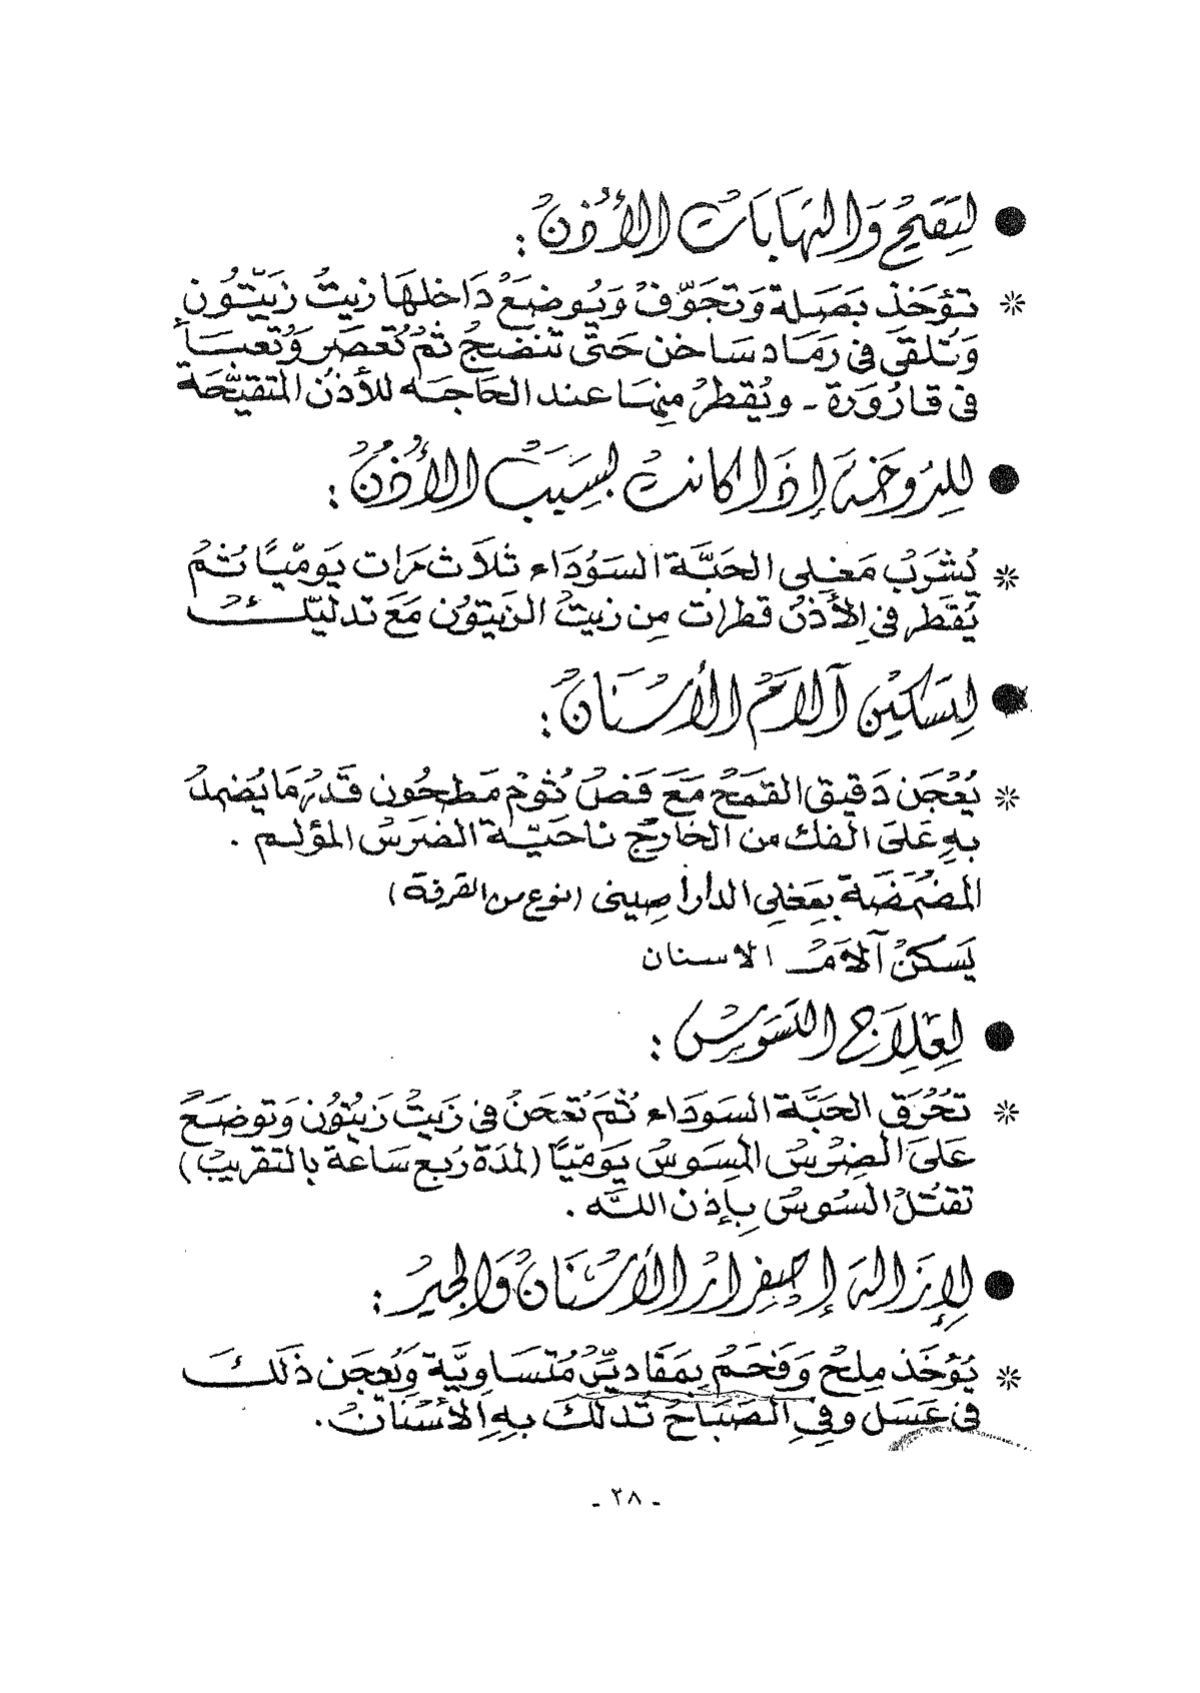 ● لتقيح والتهابات الأذن :
* تؤخذ بصلة وتجوّف ويوضع داخلها زيت زيتون
وتلقى في رماد ساخن حتى تنضج ثم تعصر وتعبأ
في قارورة - ويقطر منها عند الحاجه للأذن المتقيّحة
● للدوخة إذا كانت بسبب الأذن :
* يُشرب مغلي الحبّة السوداء ثلاث مرات يوميًّا ثم
يقطر في الأذن قطرات من زيت الزيتون مع تدليك
● لتسكين آلام الأسنان :
* يُعجن دقيق القمح مع فص ثوم مطحون قدر ما يضمد
به على الفك من الخارج ناحيّة الضرس المؤلم .
المضمضة بمغلي الدارا صيني (نوع من القرفة)
يسكن آلام الاسنان
● لعلاج التسوس :
* تُحرق الحبّة السوداء ثم تعجن في زيت زيتون وتوضع
على الضرس المسوس يوميًّا (لمدة ربع ساعة بالتقريب)
تقتل السوس بإذن اللّه .
● لإزالة إصفرار الأسنان والجير :
* يُؤخذ ملح وفحم بمقادير متساويّة ويُعجن ذلك
في عسل وفي الصباح تدلك به الأسنان .
- ٢٨ -